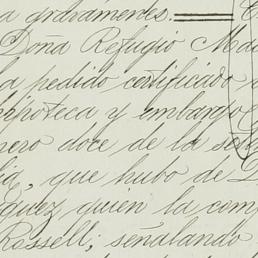 a gravámenes. ══
Doña Refugio Ma
a pedido certificado
poteca y embargo
nero doce de la se
que hubo de D
quez quien la com
Rossell; señalando